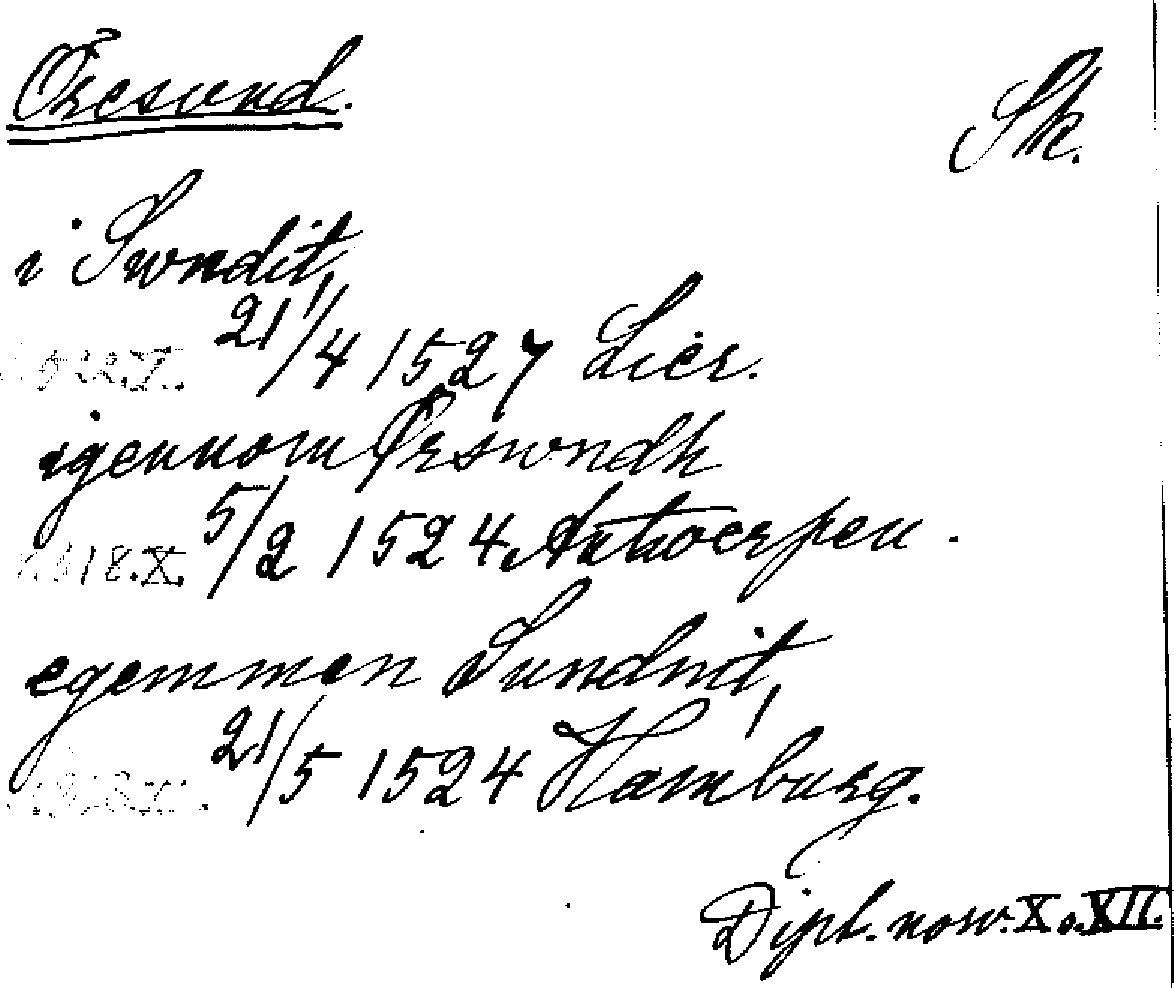 Øresund.
Sk.
i Swndit,
21/4 1527 Lier.
igennom Ørswndh
5/2 1524 Antwerpen.
egemmen Sundnit,
21/5 1524 Hamburg.
Dipl. norv. X o. XII.